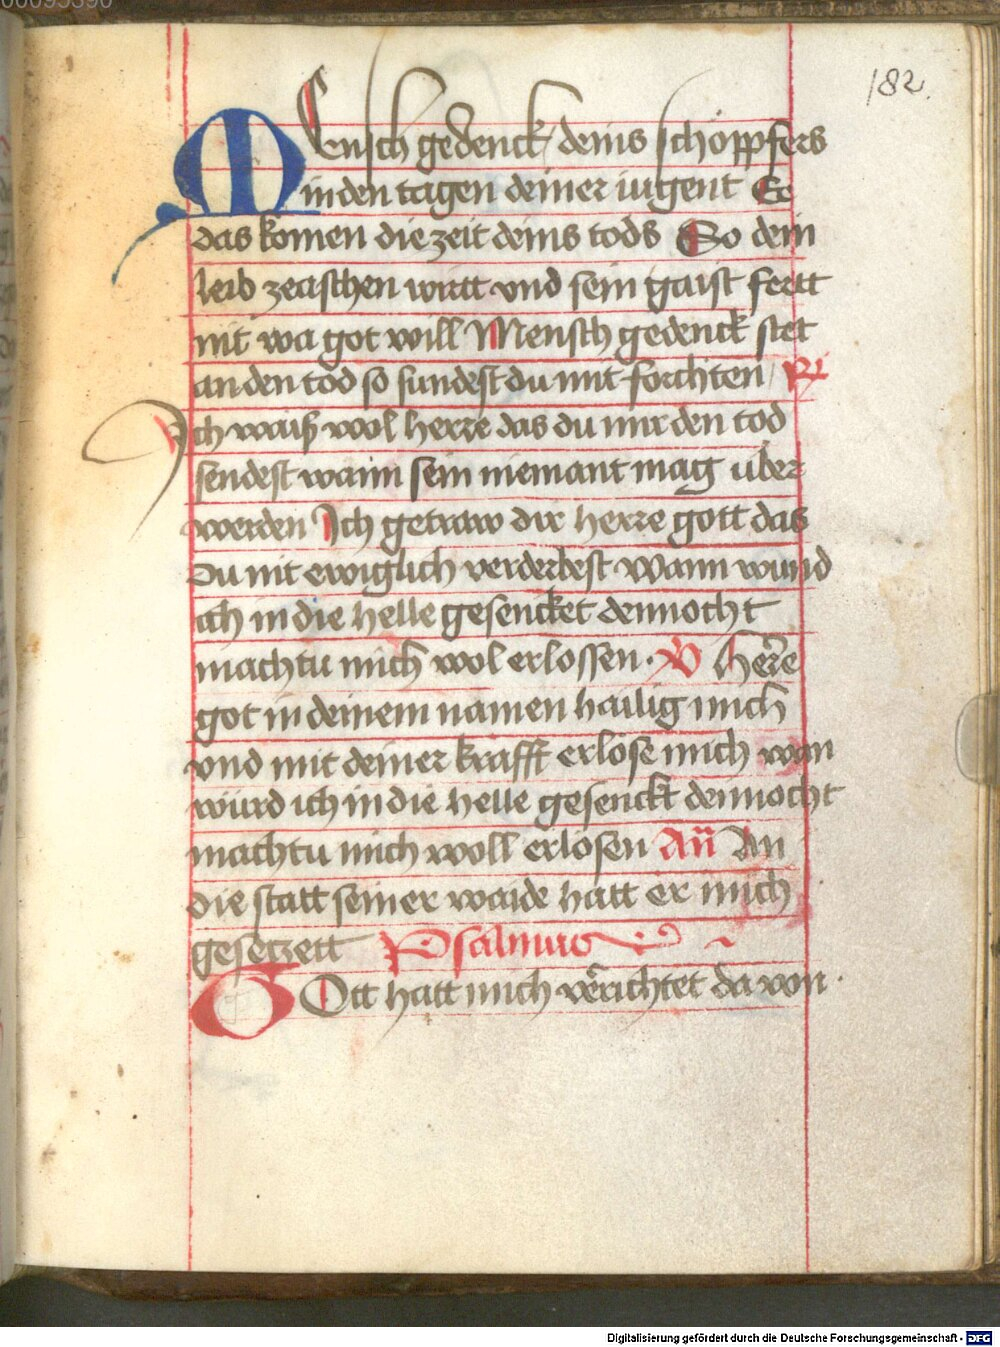 182.
MEnsch gedenck deins schöppfers
in den tagen deiner iugent Ee
das komen die zeit deins tods So dein
leib zeaschen wirtt vnd sein gaist fertt
nit wa got will Mensch gedenck stet
an den tod so sundest du mit forchten R
Ich waiß wol herre das du mir den tod
sendest wann sein niemant mag uber
werden Ich getraw dir herre gott das
du nit ewiglich verderbest Wann wurd
ich in die helle gesencket dennocht
machtu mich wol erlossen. V Herre
got in deinem namen hailig mich
vnd mit deiner krafft erlöse mich wan
würd ich in die helle gesenckt dennocht
machtu mich woll erlösen An̄ An
die statt seiner waide hatt er mich
gesetzett Psalmus
GOtt hatt mich verichtet da von
Digitalisierung gefördert durch die Deutsche Forschungsgemeinschaft - DFG